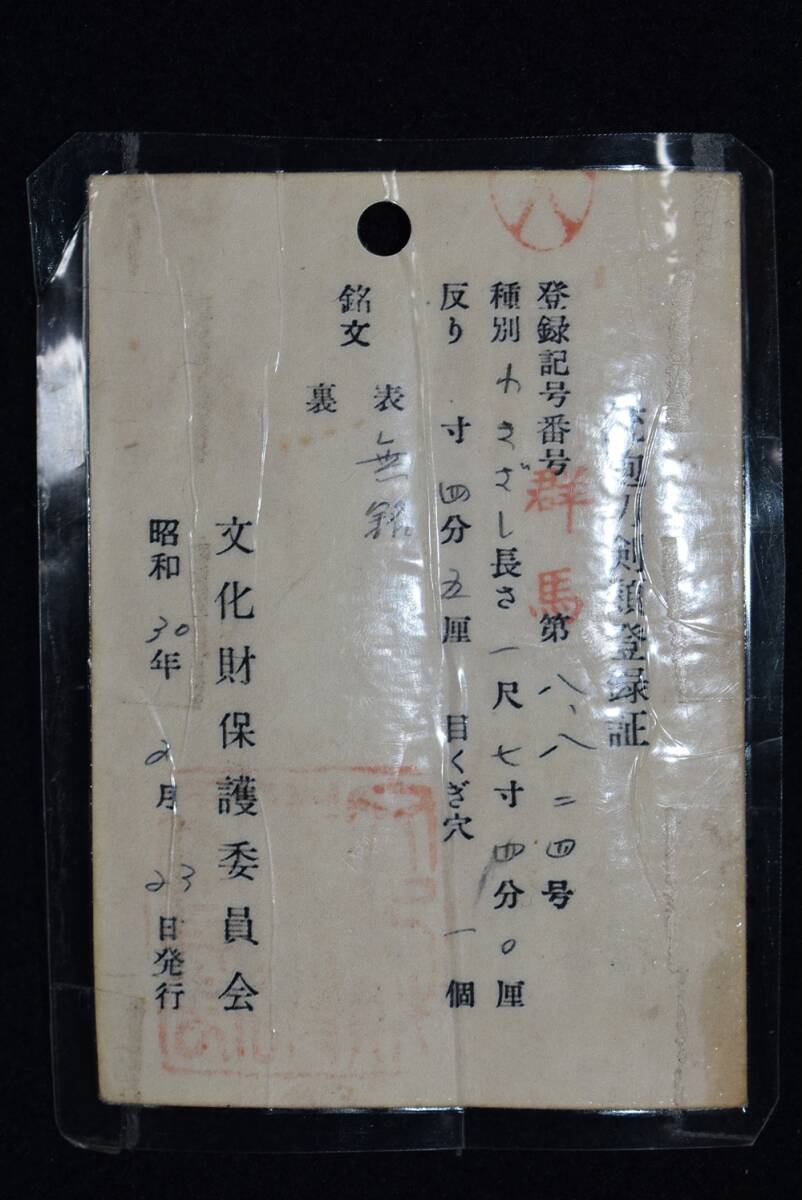 銃砲刀剣類登録証
登録記号番号 群馬 第 八、八二四号
種別 わきざし 長さ 一尺 七寸 四分 0厘
反り 寸 四分 五厘 目くぎ穴 一個
銘文 表 無銘
裏
文化財保護委員会
昭和 30年 2月 23日発行